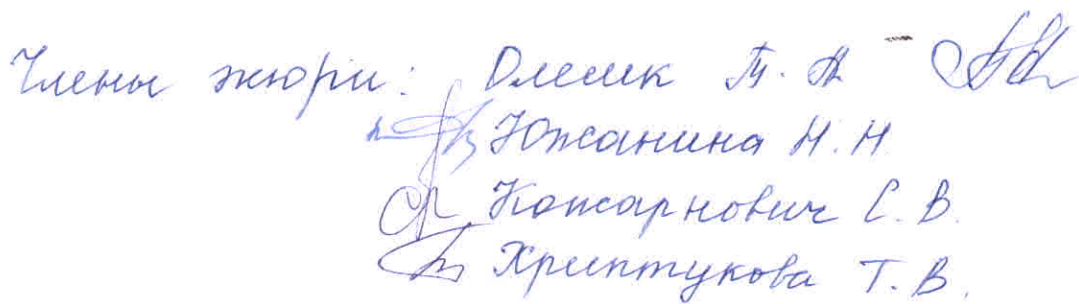 Члены жюри: Олешк Т. А
Южанина Н. Н.
Кожарнович С. В.
Хриптукова Т. В.